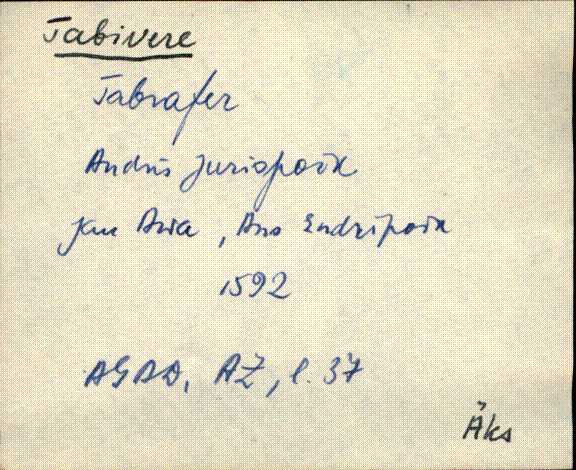 Tabivere
Tabrafer
Andris Jurispoix
Jan Awa, Ans Endripoix
1592
AGAD, AZ, l. 37
Äks